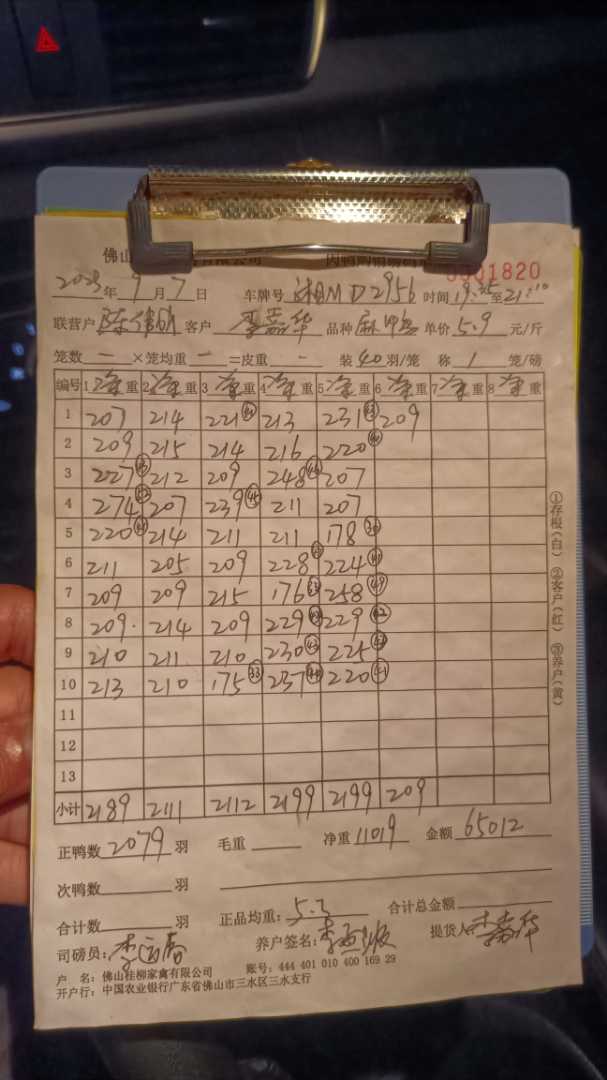 佛山
有限公司
01820
2023年9月7日 车牌号 湘M D2956 时间19:25至21:10
联营户 客户 李嘉华 品种 麻鸭 单价5.9元/斤
笼数 一 ×笼均重 一 =皮重 - 装40羽/笼 称1笼/磅
编号 1净重 2净重 3净重 4净重 5净重 6净重 7净重 8净重
1 207 214 221 213 231 209
2 209 215 214 216 220
3 227 212 209 248 207
4 274 207 239 211 207
5 220 214 211 211 178
6 211 205 209 228 224
7 209 209 215 176 258
8 209. 214 209 229 229
9 210 211 210 230 225
10 213 210 175 237 220
11
12
13
小计 2189 2111 2112 2199 2199 209
正鸭数2079羽 毛重 净重11019 金额65012
次鸭数 羽
合计数 羽 正品均重:5.3 合计总金额
司磅员: 养户签名: 提货人:李嘉华
户 名:佛山桂柳家禽有限公司 账号:444 401 010 400 169 29
开户行:中国农业银行广东省佛山市三水区三水支行
①存根(白) ②客户(红) ③养户(黄)